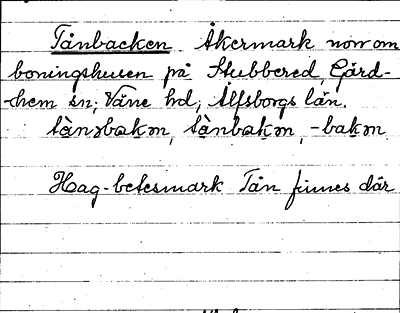 Tånbacken Åkermark norr om
boningshusen på Stubbered, Gärd-
-hem sn; Väne hd, Älfsborgs län.
tànbakən, -bakən
Hag-betesmark Tån finnes där